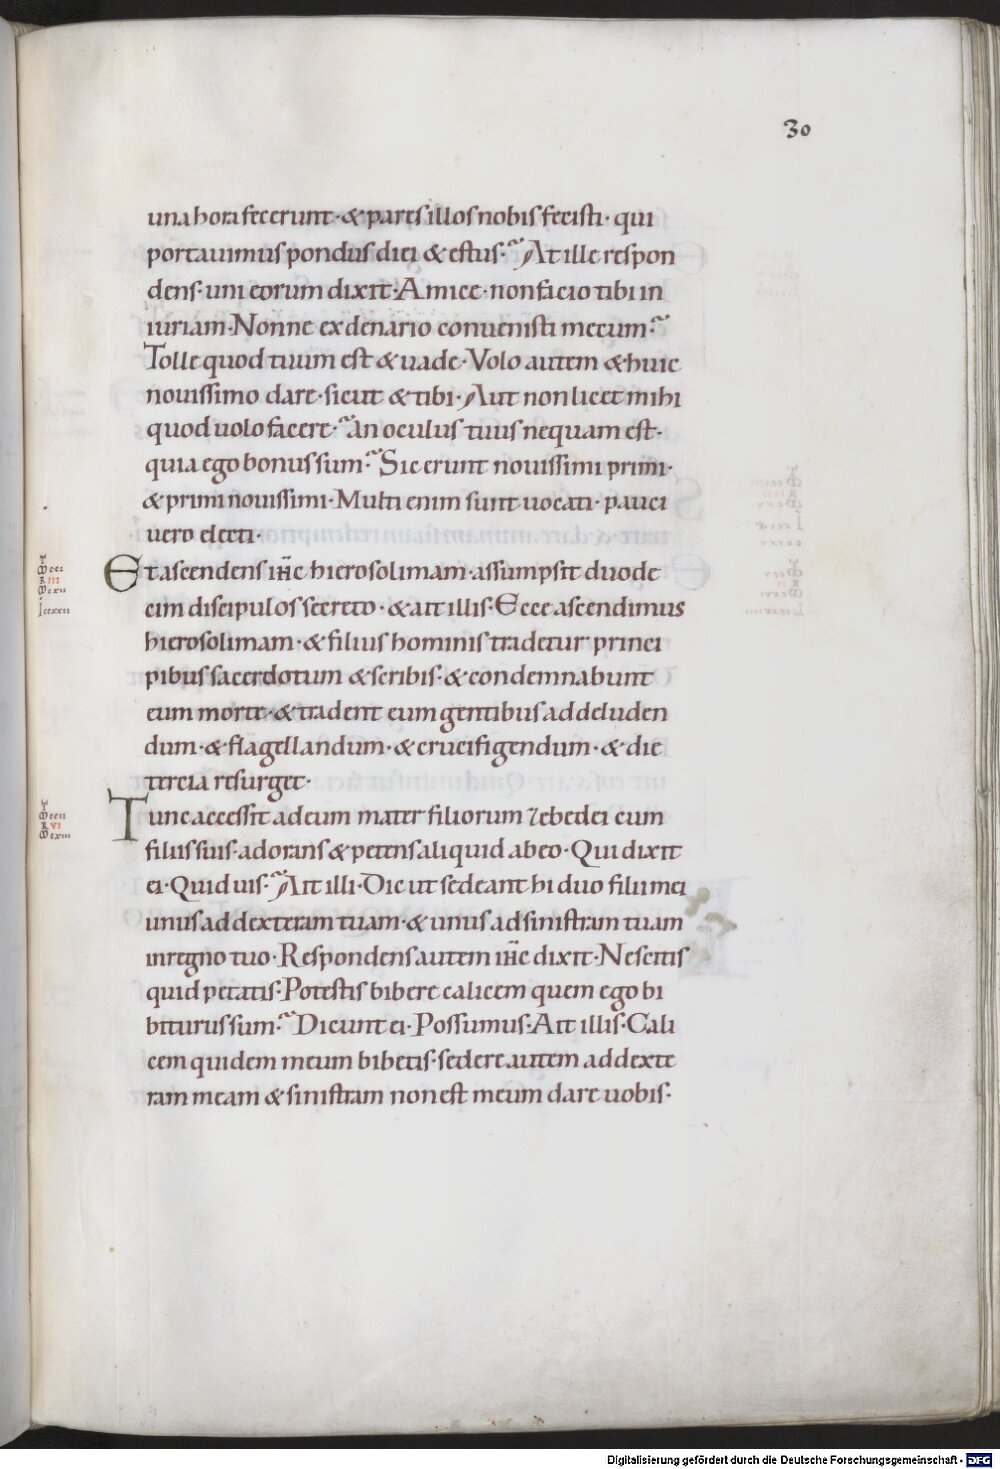 30
una hora fecerunt· & pares illos nobis fecisti· qui
portauimus pondus diei & estus· At ille respon
dens· uni eorum dixit· Amice· non facio tibi in
iuriam· Nonne ex denario conuenisti mecum·
Tolle quod tuum est & uade· Volo autem & huic
nouissimo dare· sicut & tibi· Aut non licet mihi
quod uolo facere· an oculus tuus nequam est·
quia ego bonus sum· Sic erunt nouissimi primi·
& primi nouissimi· Multi enim sunt uocati· pauci
uero electi·
Et ascendens ihc hierosolimam· assumpsit duode
cim discipulos secreto· & ait illis· Ecce ascendimus
hierosolimam· & filius hominis tradetur princi
pibus sacerdotum & scribis· & condemnabunt
eum morte· & tradent eum gentibus ad deluden
dum· & flagellandum· & crucifigendum· & die
tercia resurget·
Tunc accessit ad eum mater filiorum zebedei cum
filiis suis· adorans & petens aliquid ab eo· Qui dixit
ei· Quid uis· Ait illi· Dic ut sedeant hi duo filii mei
unus ad dexteram tuam· & unus ad sinistram tuam
in regno tuo· Respondens autem ihc dixit· Nescitis
quid petatis· Potestis bibere calicem quem ego bi
biturus sum· Dicunt ei· Possumus· Ait illis· Cali
cem quidem meum bibetis· sedere autem ad dexte
ram meam & sinistram non est meum dare uobis·
Digitalisierung gefördert durch die Deutsche Forschungsgemeinschaft - DFG